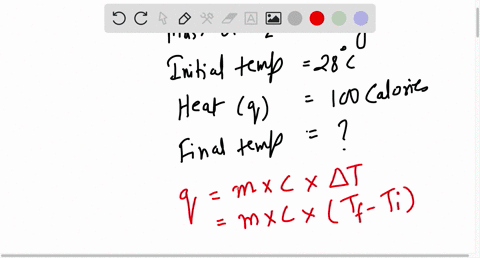 Initial temp = 28°C
Heat (q) = 100 Calories
Final temp = ?
q = m × c × ΔT
= m × c × (Tf - Ti)